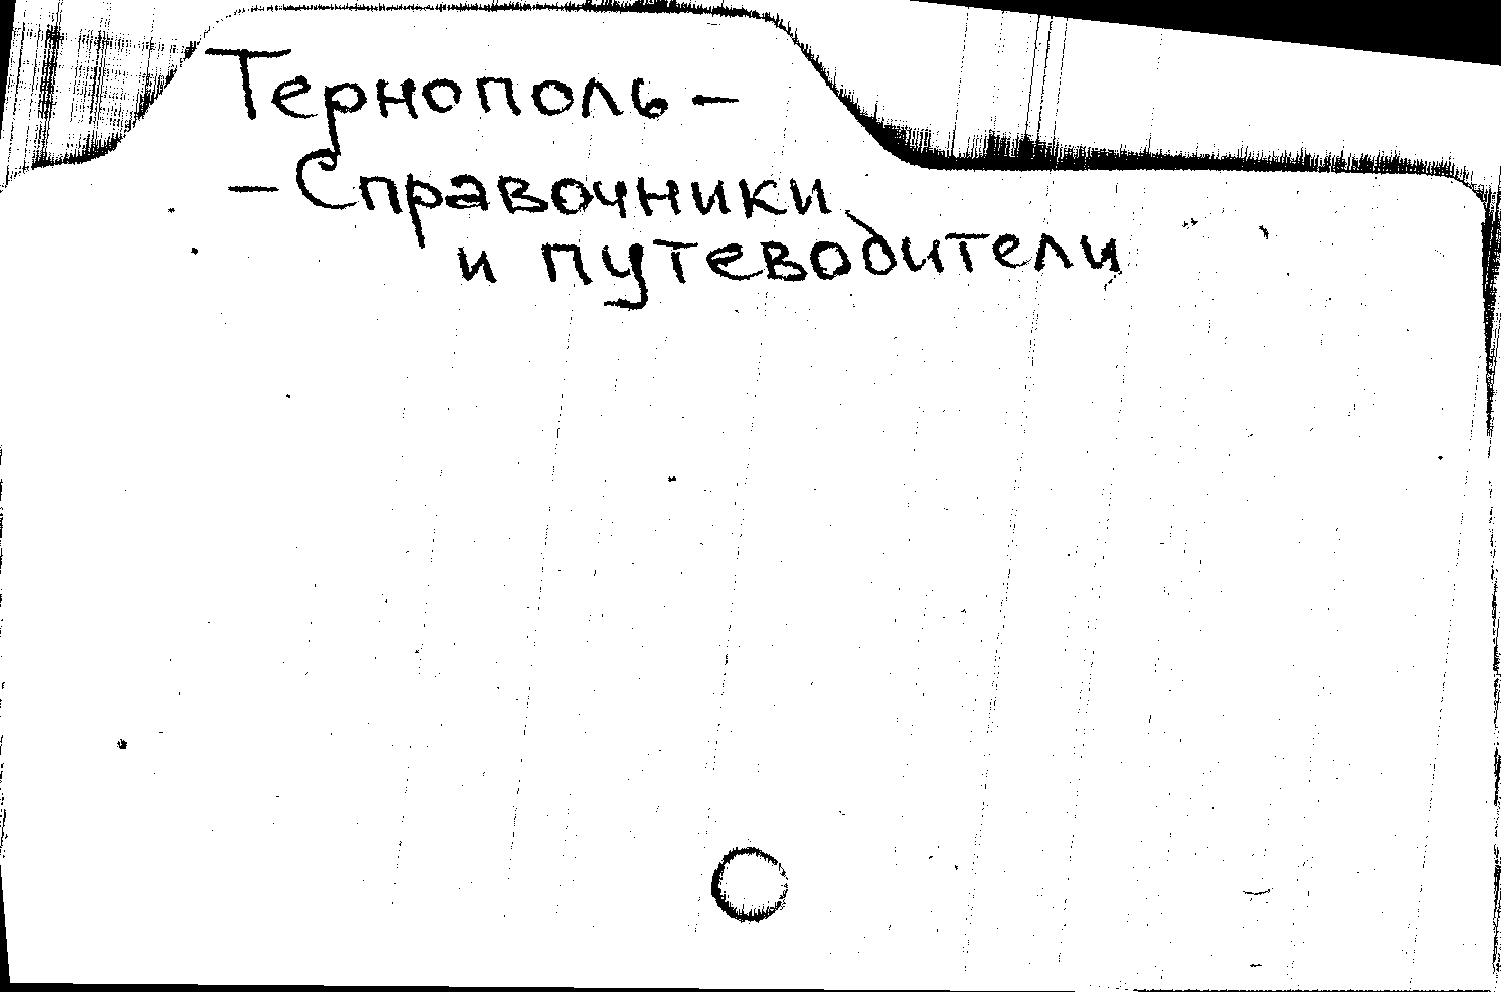 Тернополь –
– Справочники
и путеводители